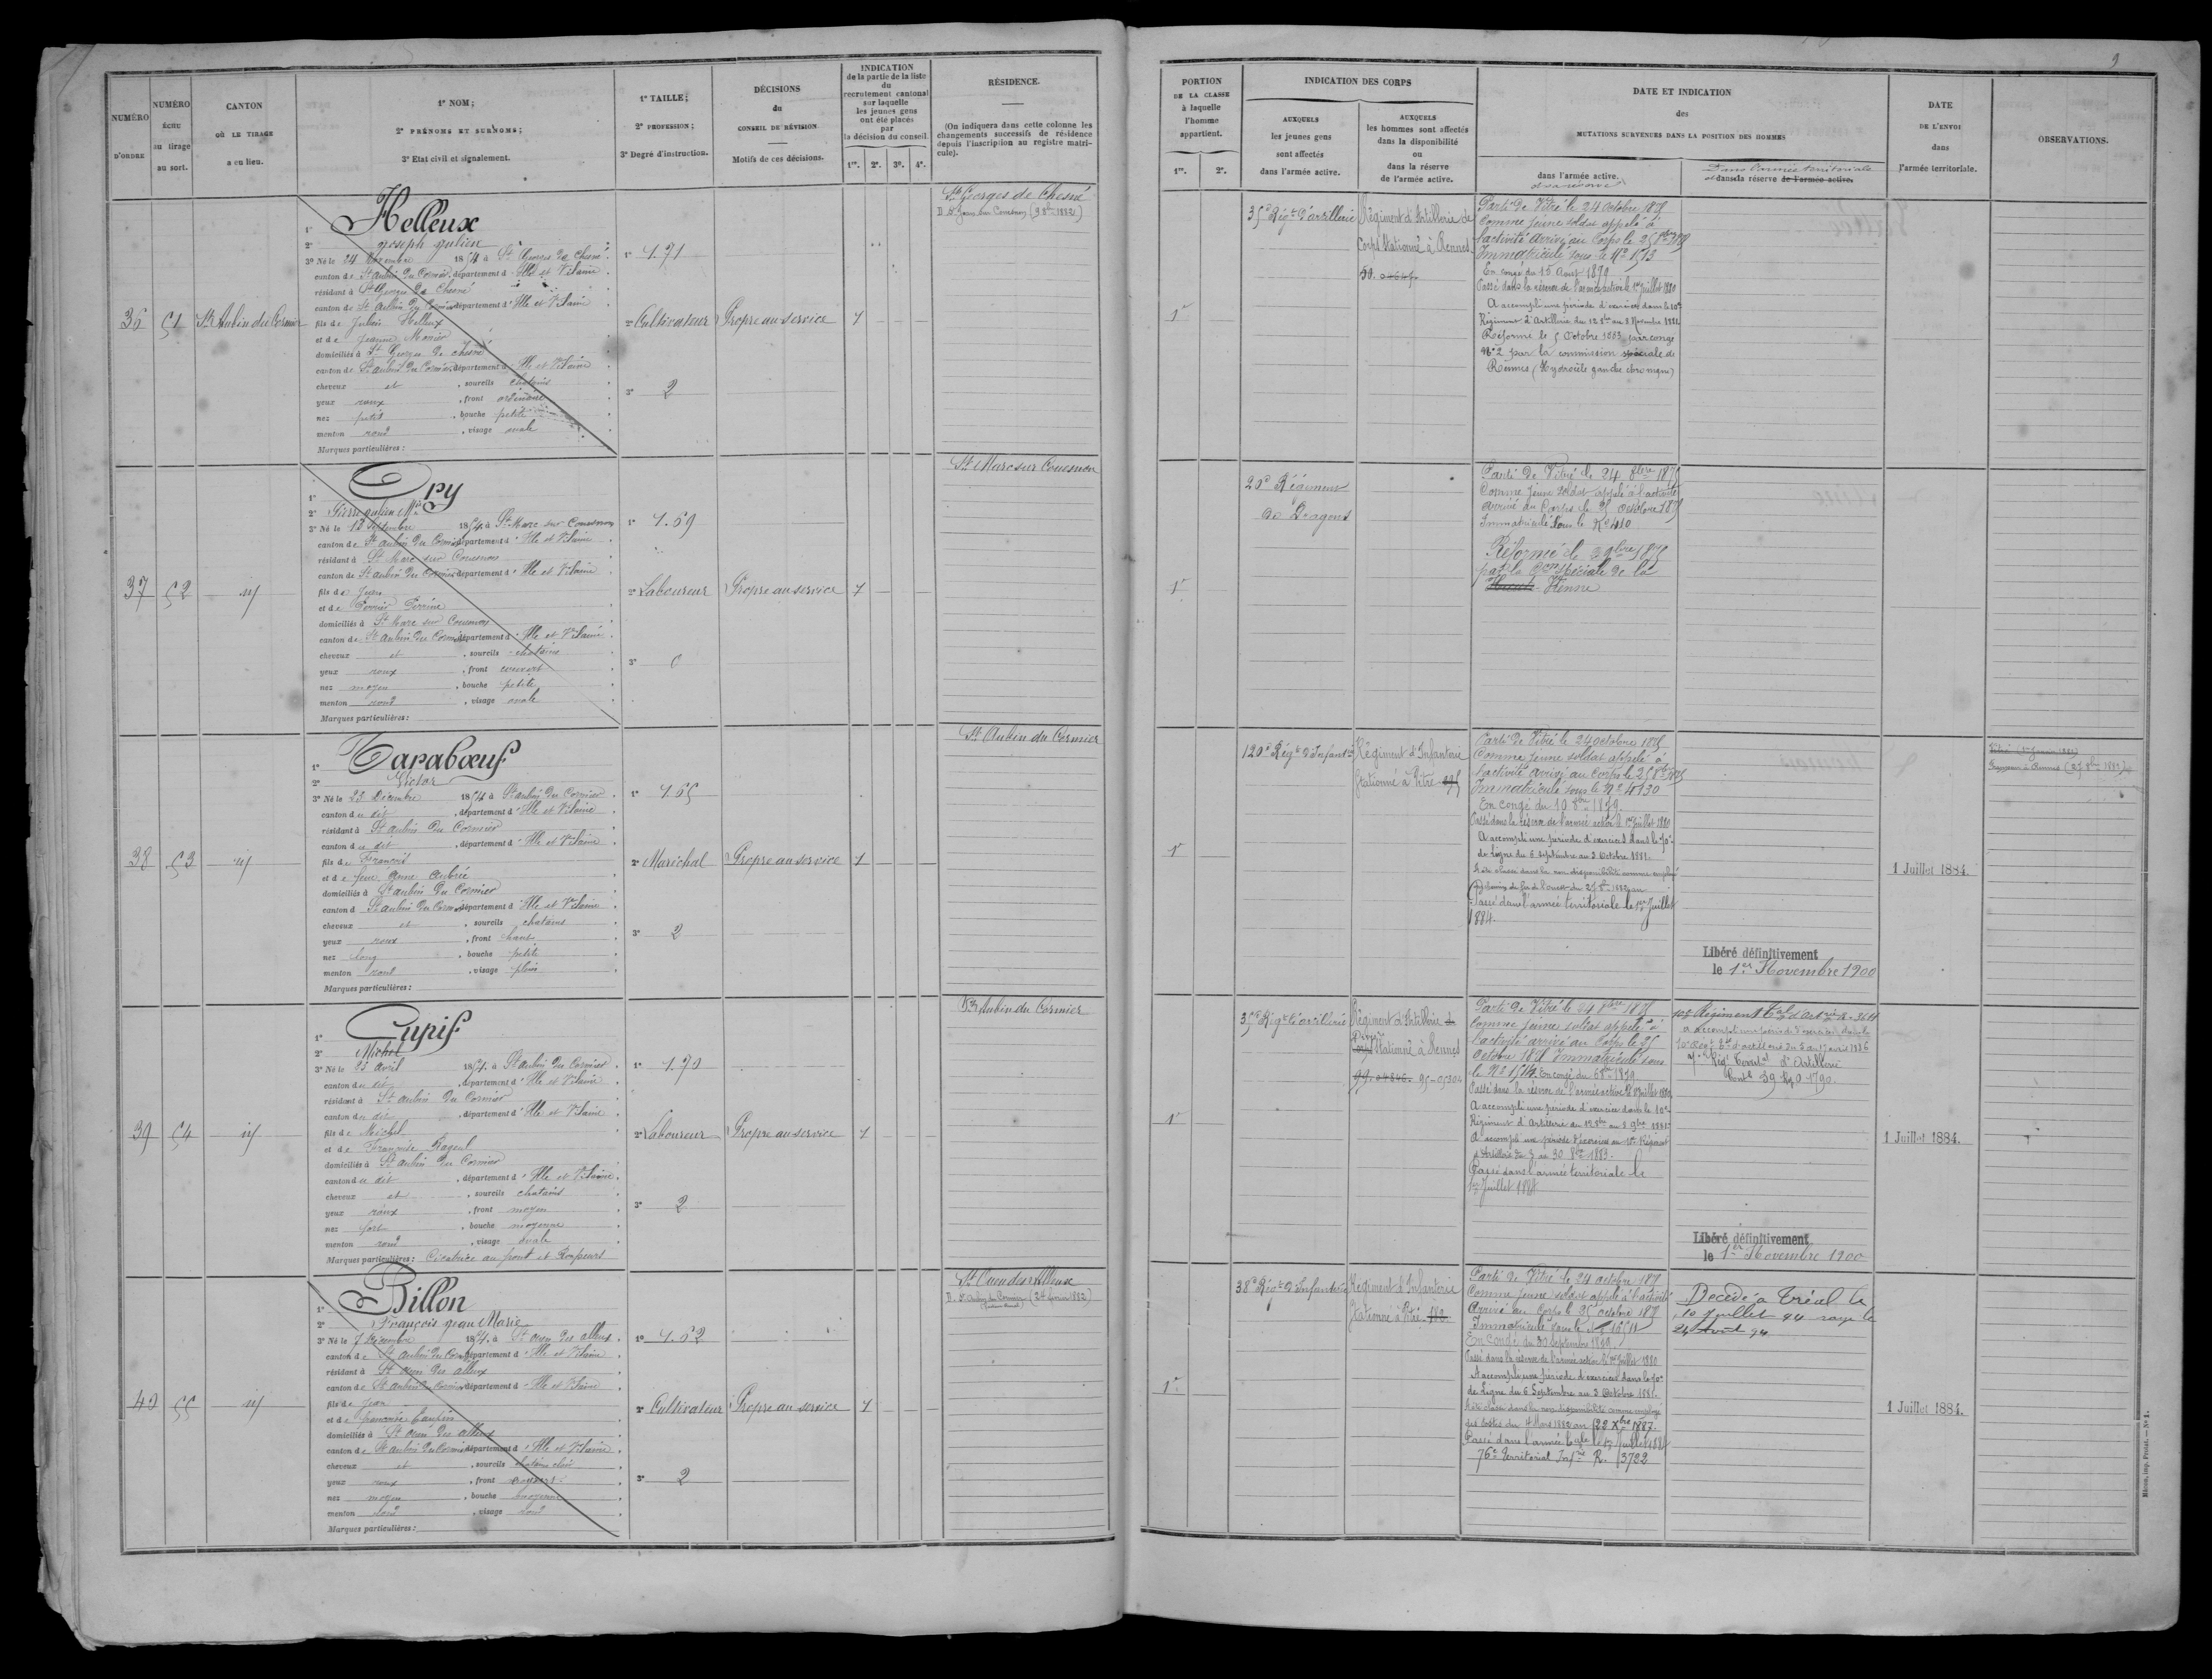 NUMÉRO
D'ORDRE
NUMÉRO
ÉCHU
au tirage
au sort.
CANTON
OÙ LE TIRAGE
a eu lieu.
1° NOM;
2° PRÉNOMS ET SURNOMS;
3° Etat civil et signalement.
1° TAILLE;
2° PROFESSION;
3° Degré d'instruction.
DÉCISIONS
du
CONSEIL DE RÉVISION
Motifs de ces décisions.
INDICATION
de la partie de la liste
du
recrutement cantonal
sur laquelle
les jeunes gens
ont été placés
par
la décision du conseil.
1re. 2e. 3e. 4e.
RÉSIDENCE.
(On indiquera dans cette colonne les
changements successifs de résidence
depuis l'inscription au registre matri-
cule).
36
51
St Aubin du Cormier
1° Helleux
2° Joseph Julien
3° Né le 24 Novembre 1854 à St Georges de Chesné
canton de St aubin du Cormier, département d'Ille et Vilaine
résidant à St Georges de Chesné
canton de St aubin du Cormier département d'Ille et Vilaine
fils de Julien Helleux
et de Jeanne
domiciliés à St Georges de chesné
canton de St aubin du Cormier département d'Ille et Vilaine
cheveux et , sourcils chatains
yeux roux , front ordinaire
nez petit , bouche petite
menton rond , visage ovale
Marques particulières :
1° 1.71
2° Cultivateur
3° 2
Propre au service
1
St Georges de Chesné
37
52
1° Ory
2° Pierre Julien Mie
3° Né le 13 Septembre 1854 à St Marc sur Couesnon
canton de St aubin du Cormier département d'Ille et Vilaine
résidant à St Marc sur Couesnon
canton de St aubin du Cormier département d'Ille et Vilaine
fils de Jean
et de Perrine
domiciliés à St Marc sur Couesnon
canton de St aubin du Cormier département d'Ille et Vilaine
cheveux et , sourcils chatains
yeux roux , front couvert
nez moyen , bouche petite
menton rond , visage ovale
Marques particulières :
1° 1.69
2° Laboureur
3° 0
Propre au service
1
St Marc sur Couesnon
38
53
1° Tarabœuf
2° Victor
3° Né le 23 Décembre 1854 à St aubin du Cormier
canton du dit , département d'Ille et Vilaine
résidant à St aubin du Cormier
canton du dit , département d'Ille et Vilaine
fils de François
et de feue Anne Aubrée
domiciliés à St aubin du Cormier
canton d St aubin du Cormier département d'Ille et Vilaine
cheveux et , sourcils chatains
yeux roux , front haut
nez long , bouche petite
menton rond , visage plein
Marques particulières :
1° 1.65
2° Maréchal
3° 2
Propre au service
1
St Aubin du Cormier
39
54
1° Cupif
2° Michel
3° Né le 25 avril 1854 à St aubin du Cormier
canton du dit , département d'Ille et Vilaine
résidant à St aubin du Cormier
canton du dit , département d'Ille et Vilaine
fils de Michel
et de Françoise Rageul
domiciliés à St aubin du Cormier
canton du dit , département d'Ille et Vilaine
cheveux et , sourcils chatains
yeux roux , front moyen
nez fort , bouche moyenne
menton rond , visage ovale
Marques particulières : Cicatrice au front et Rougeurs
1° 1.70
2° Laboureur
3° 2
Propre au service
1
St Aubin du Cormier
40
55
1° Billon
2° François Jean Marie
3° Né le 7 Décembre 1854 à St ouen des alleux
canton de St aubin du Cormier département d'Ille et Vilaine
résidant à St ouen des alleux
canton de St aubin du Cormier département d'Ille et Vilaine
fils de Jean
et de Françoise
domiciliés à St ouen des alleux
canton de St aubin du Cormier département d'Ille et Vilaine
cheveux et , sourcils chatains clair
yeux roux , front
nez moyen , bouche moyenne
menton rond , visage rond
Marques particulières :
1° 1.62
2° Cultivateur
3° 2
Propre au service
1
St Ouen des Alleux
D. St Aubin du Cormier (24 février 1882)
9
PORTION
DE LA CLASSE
à laquelle
l'homme
appartient.
1re. 2e.
INDICATION DES CORPS
AUXQUELS
les jeunes gens
sont affectés
dans l'armée active.
AUXQUELS
les hommes sont affectés
dans la disponibilité
ou
dans la réserve
de l'armée active.
DATE ET INDICATION
des
MUTATIONS SURVENUES DANS LA POSITION DES HOMMES
dans l'armée active.
et sa réserve
Dans l'armée territoriale
et dans la réserve de l'armée active.
DATE
DE L'ENVOI
dans
l'armée territoriale.
OBSERVATIONS.
1re
35e Régt d'artillerie
Régiment d'Artillerie de
Corps Stationné à Rennes
Parti de Vitré le 24 Octobre 1875
Comme jeune soldat appelé à
l'activité arrivé au Corps le 25 8bre 1875
Immatriculé sous le N° 1513
En congé du 15 Aout 1879
Passé dans la réserve de l'armée active le 1er Juillet 1880
A accompli une période d'exercices dans le 10e
Régiment d'Artillerie du 12 8bre au 8 Novembre 1881
Réformé le 5 Octobre 1883 par congé
N° 2 par la commission spéciale de
Rennes (Hydrocèle gauche chronique)
1re
20e Régiment
de Dragons
Parti de Vitré le 24 8bre 1875
Comme jeune soldat appelé à l'activité
arrivé au Corps le 25 octobre 1875
Immatriculé sous le N° 410
Réformé le 2 9bre 1875
par la Con spéciale de la
Vienne
1re
120e Régt d'Infanterie
Régiment d'Infanterie
Stationné à Vitré
Parti de Vitré le 24 octobre 1875
Comme jeune soldat appelé à
l'activité arrivé au Corps le 25 8bre 1875
Immatriculé sous le N° 4130
En congé du 10 8bre 1879
Passé dans la réserve de l'armée active le 1er Juillet 1880
A accompli une période d'exercices dans le 70e
de Ligne du 6 septembre au 3 Octobre 1881.
A été classé dans la non disponibilité comme employé
Passé dans l'armée territoriale le 1er Juillet
1884.
Libéré définitivement
le 1er Novembre 1900
1 Juillet 1884.
1re
35e Régt d'artillerie
Régiment d'Artillerie
Stationné à Rennes
95-05304
Parti de Vitré le 24 8bre 1875
Comme jeune soldat appelé à
l'activité arrivé au Corps le 25
Octobre 1875 Immatriculé sous
le N° 1514. En congé du 6 8bre 1879
Passé dans la réserve de l'armée active le 1er Juillet 1880
A accompli une période d'exercice dans le 10e
Régiment d'Artillerie du 12 8bre au 8 9bre 1881
A accompli une période d'exercices au 10e Régiment
d'Artillerie du 3 au 30 8bre 1883.
Passé dans l'armée territoriale le
1er Juillet 1884
10e Régiment
7e Régt Territal d'Artillerie
Libéré définitivement
le 1er Novembre 1900
1 Juillet 1884.
1re
38e Régt d'Infanterie
Régiment d'Infanterie
Stationné à Vitré
Parti de Vitré le 24 octobre 1875
Comme jeune soldat appelé à l'activité
Arrivé au Corps le 25 octobre 1875
Immatriculé sous le
En congé du 30 Septembre 1879
Passé dans la réserve de l'armée active le 1er Juillet 1880
A accompli une période d'exercices dans le 70e
de Ligne du 6 Septembre au 3 Octobre 1881.
A été classé dans la non disponibilité comme employé
des Postes du 4 Mars 1882 au 22 Xbre 1887.
Passé dans l'armée tale le 1er Juillet 1884
76e Territorial Infrie R. 3722
Décédé à Tréal le
10 Juillet 94 rayé le
24 Août 94
1 Juillet 1884.
Mâcon, imp. Protat. — N° 1.